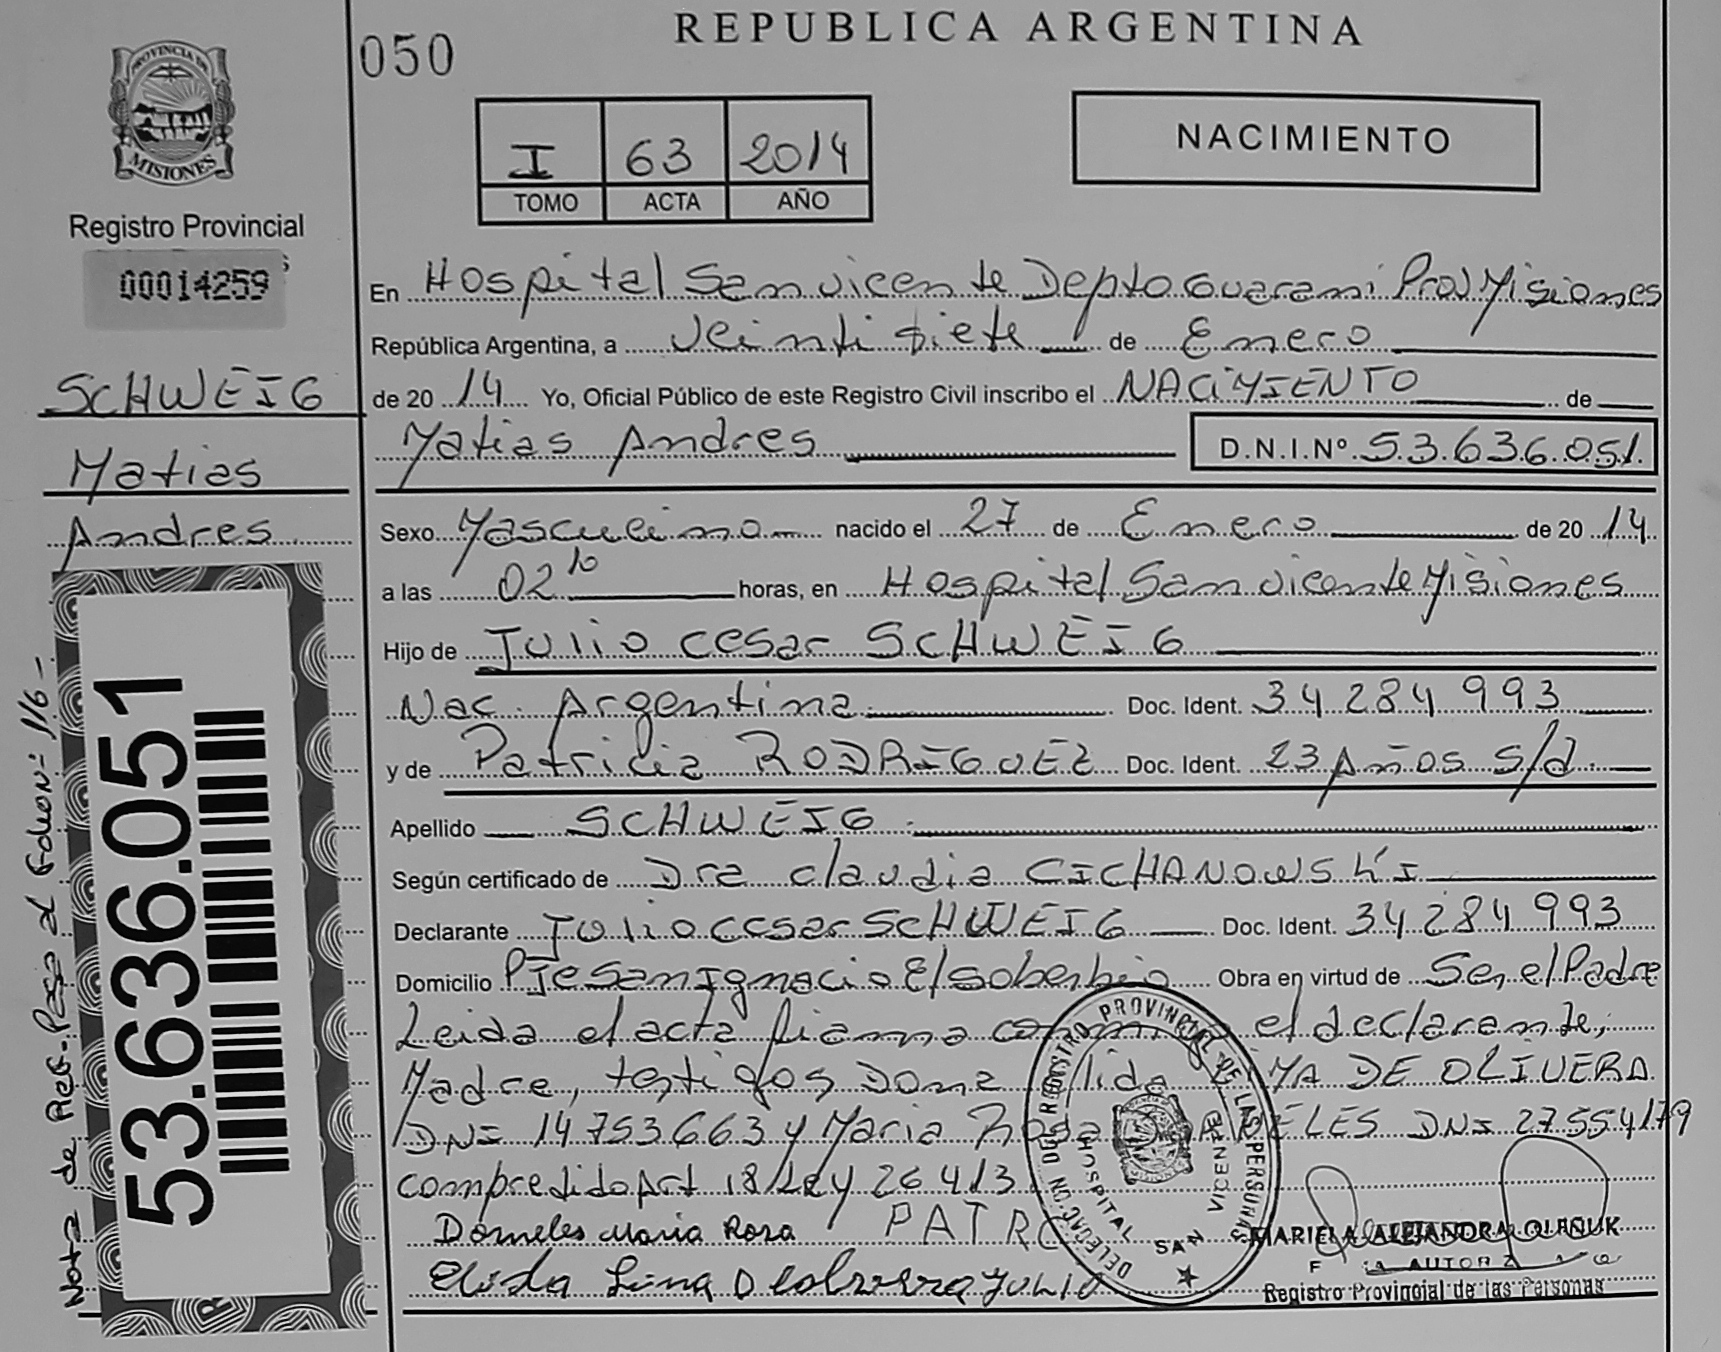 050
REPUBLICA ARGENTINA
PROVINCIA DE
MISIONES
Registro Provincial
00014259
I 63 2014
TOMO ACTA AÑO
NACIMIENTO
SCHWEIG
Matias
Andres
53.636.051
Nota de Ref. Paso al Folio Nº 116-
En Hospital San vicente Depto Guarani Prov Misiones
República Argentina, a veintisiete de Enero
de 20 14 Yo, Oficial Público de este Registro Civil inscribo el NACIMIENTO de
Matias Andres D.N.I.Nº 53.636.051.
Sexo Masculino nacido el 27 de Enero de 20 14
a las 02 10 horas, en Hospital San vicente Misiones
Hijo de Julio cesar SCHWEIG
Nac. Argentina Doc. Ident. 34 284 993
y de Patricia RODRIGUEZ Doc. Ident. 23 Años s/d.
Apellido SCHWEIG
Según certificado de Dra claudia CICHANOWSKI
Declarante Julio cesar SCHWEIG Doc. Ident. 34 284 993
Domicilio Pje San Ignacio El soberbio Obra en virtud de Ser, el Padre
Leida el acta firma el declarante,
Madre, testigos Doña DE OLIVERA
DNI 14 753 663 y Maria Rosa DNI 27 554 179
compredido Art 18 Ley 26 413
Dorneles Maria Rosa PATRC
Elida Lima D JULIO
DELEGAC. DEL REGISTRO PROVINCIAL DE LAS PERSONAS
HOSPITAL SAN VICENTE
MARIELA ALEJANDRA
Registro Provincial de las Personas